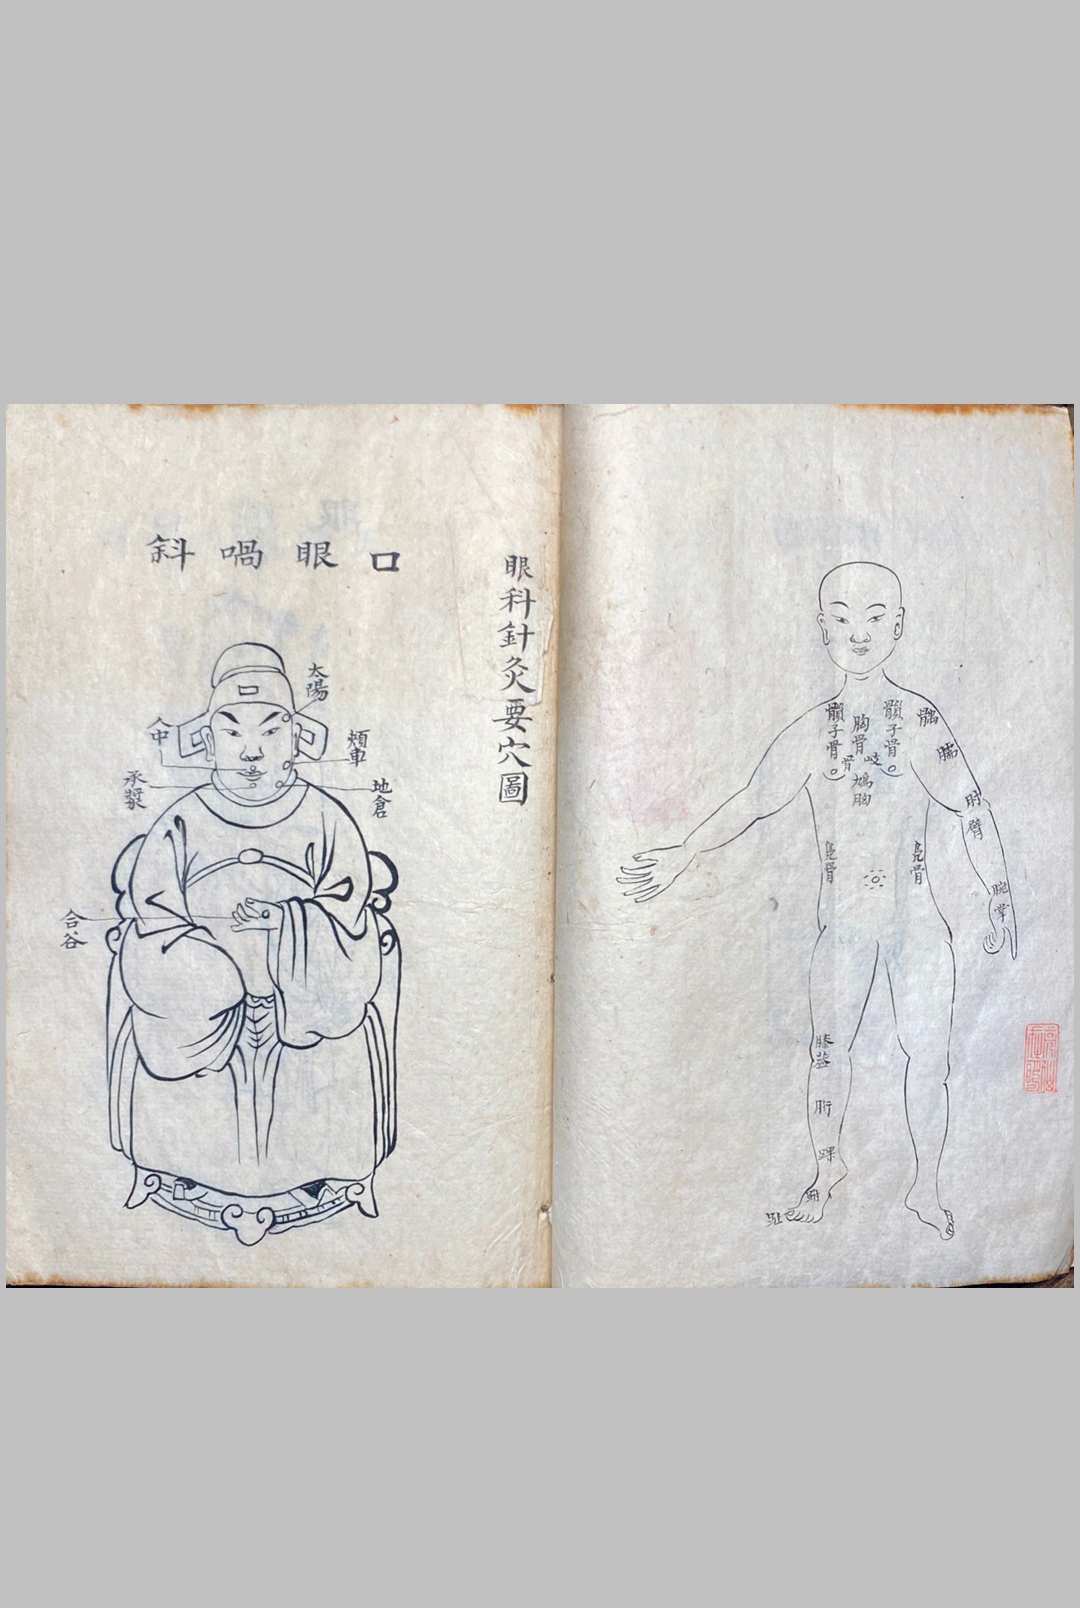 眼科針灸要穴圖
口眼喎斜
太陽
人中
頰車
承漿
地倉
合谷
胸骨
子骨
子骨
岐骨
鳩胸
肘
臂
腕
掌
骨
骨
膝蓋
胻
踝
跗
趾